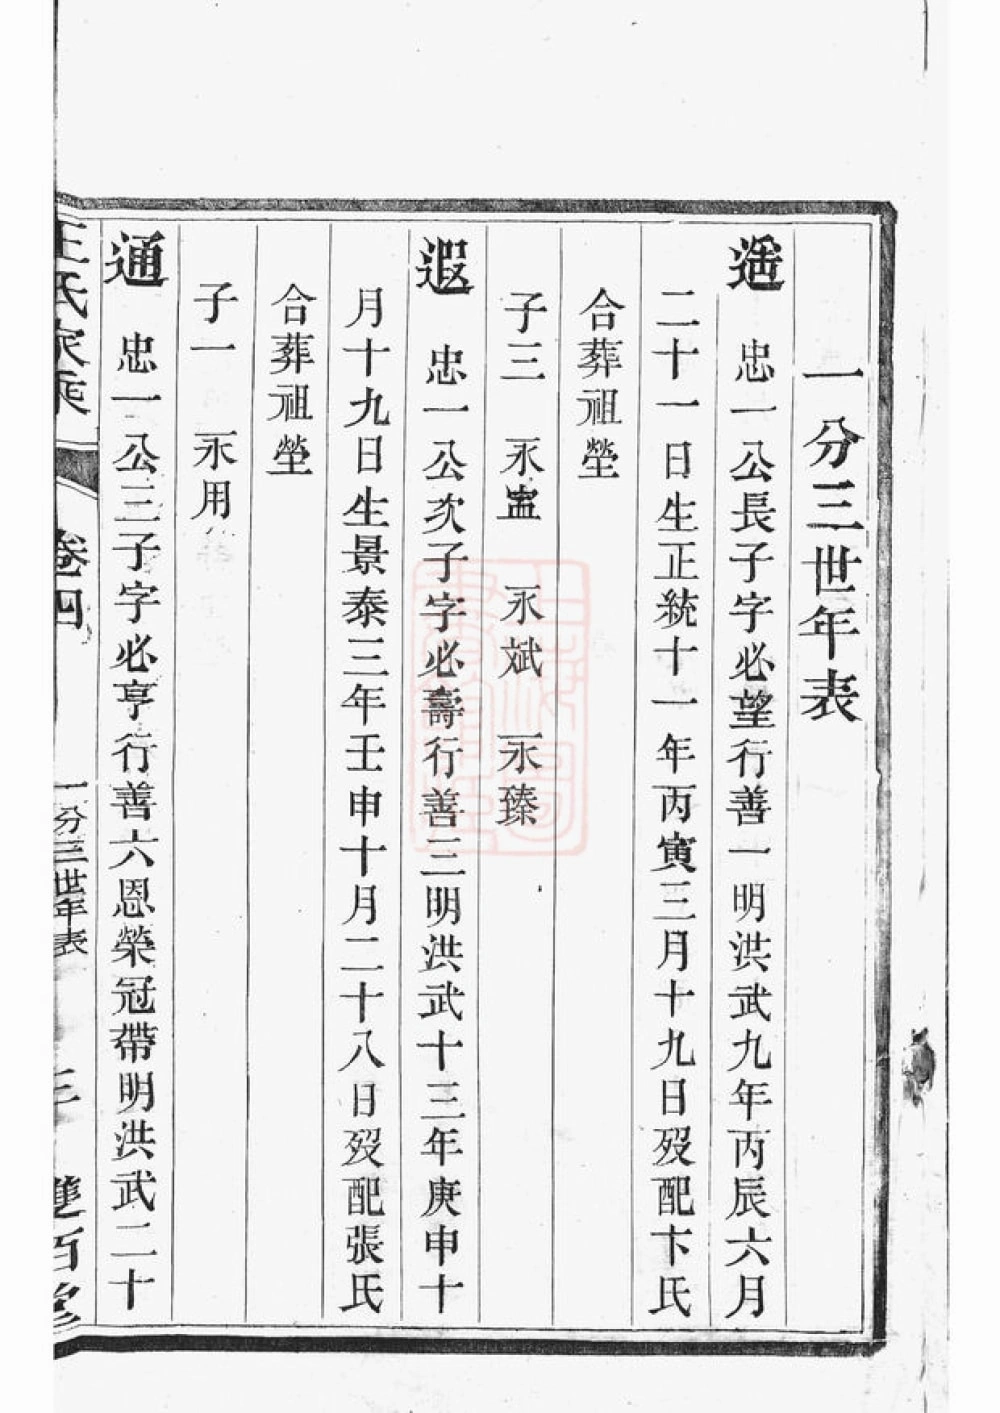 一分三世年表
逜　忠一公長子字必望行善一明洪武九年丙辰六月
二十一日生正統十一年丙寅三月十九日歿配卞氏
合葬祖塋
子三　永盅　永斌　永臻
遐　忠一公次子字必壽行善三明洪武十三年庚申十
月十九日生景泰三年壬申十月二十八日歿配張氏
合葬祖塋
子一　永用
通　忠一公三子字必亨行善六恩榮冠帶明洪武二十
王氏家乘　卷四　一分三世年表　三　雙百堂
上海圖書館藏